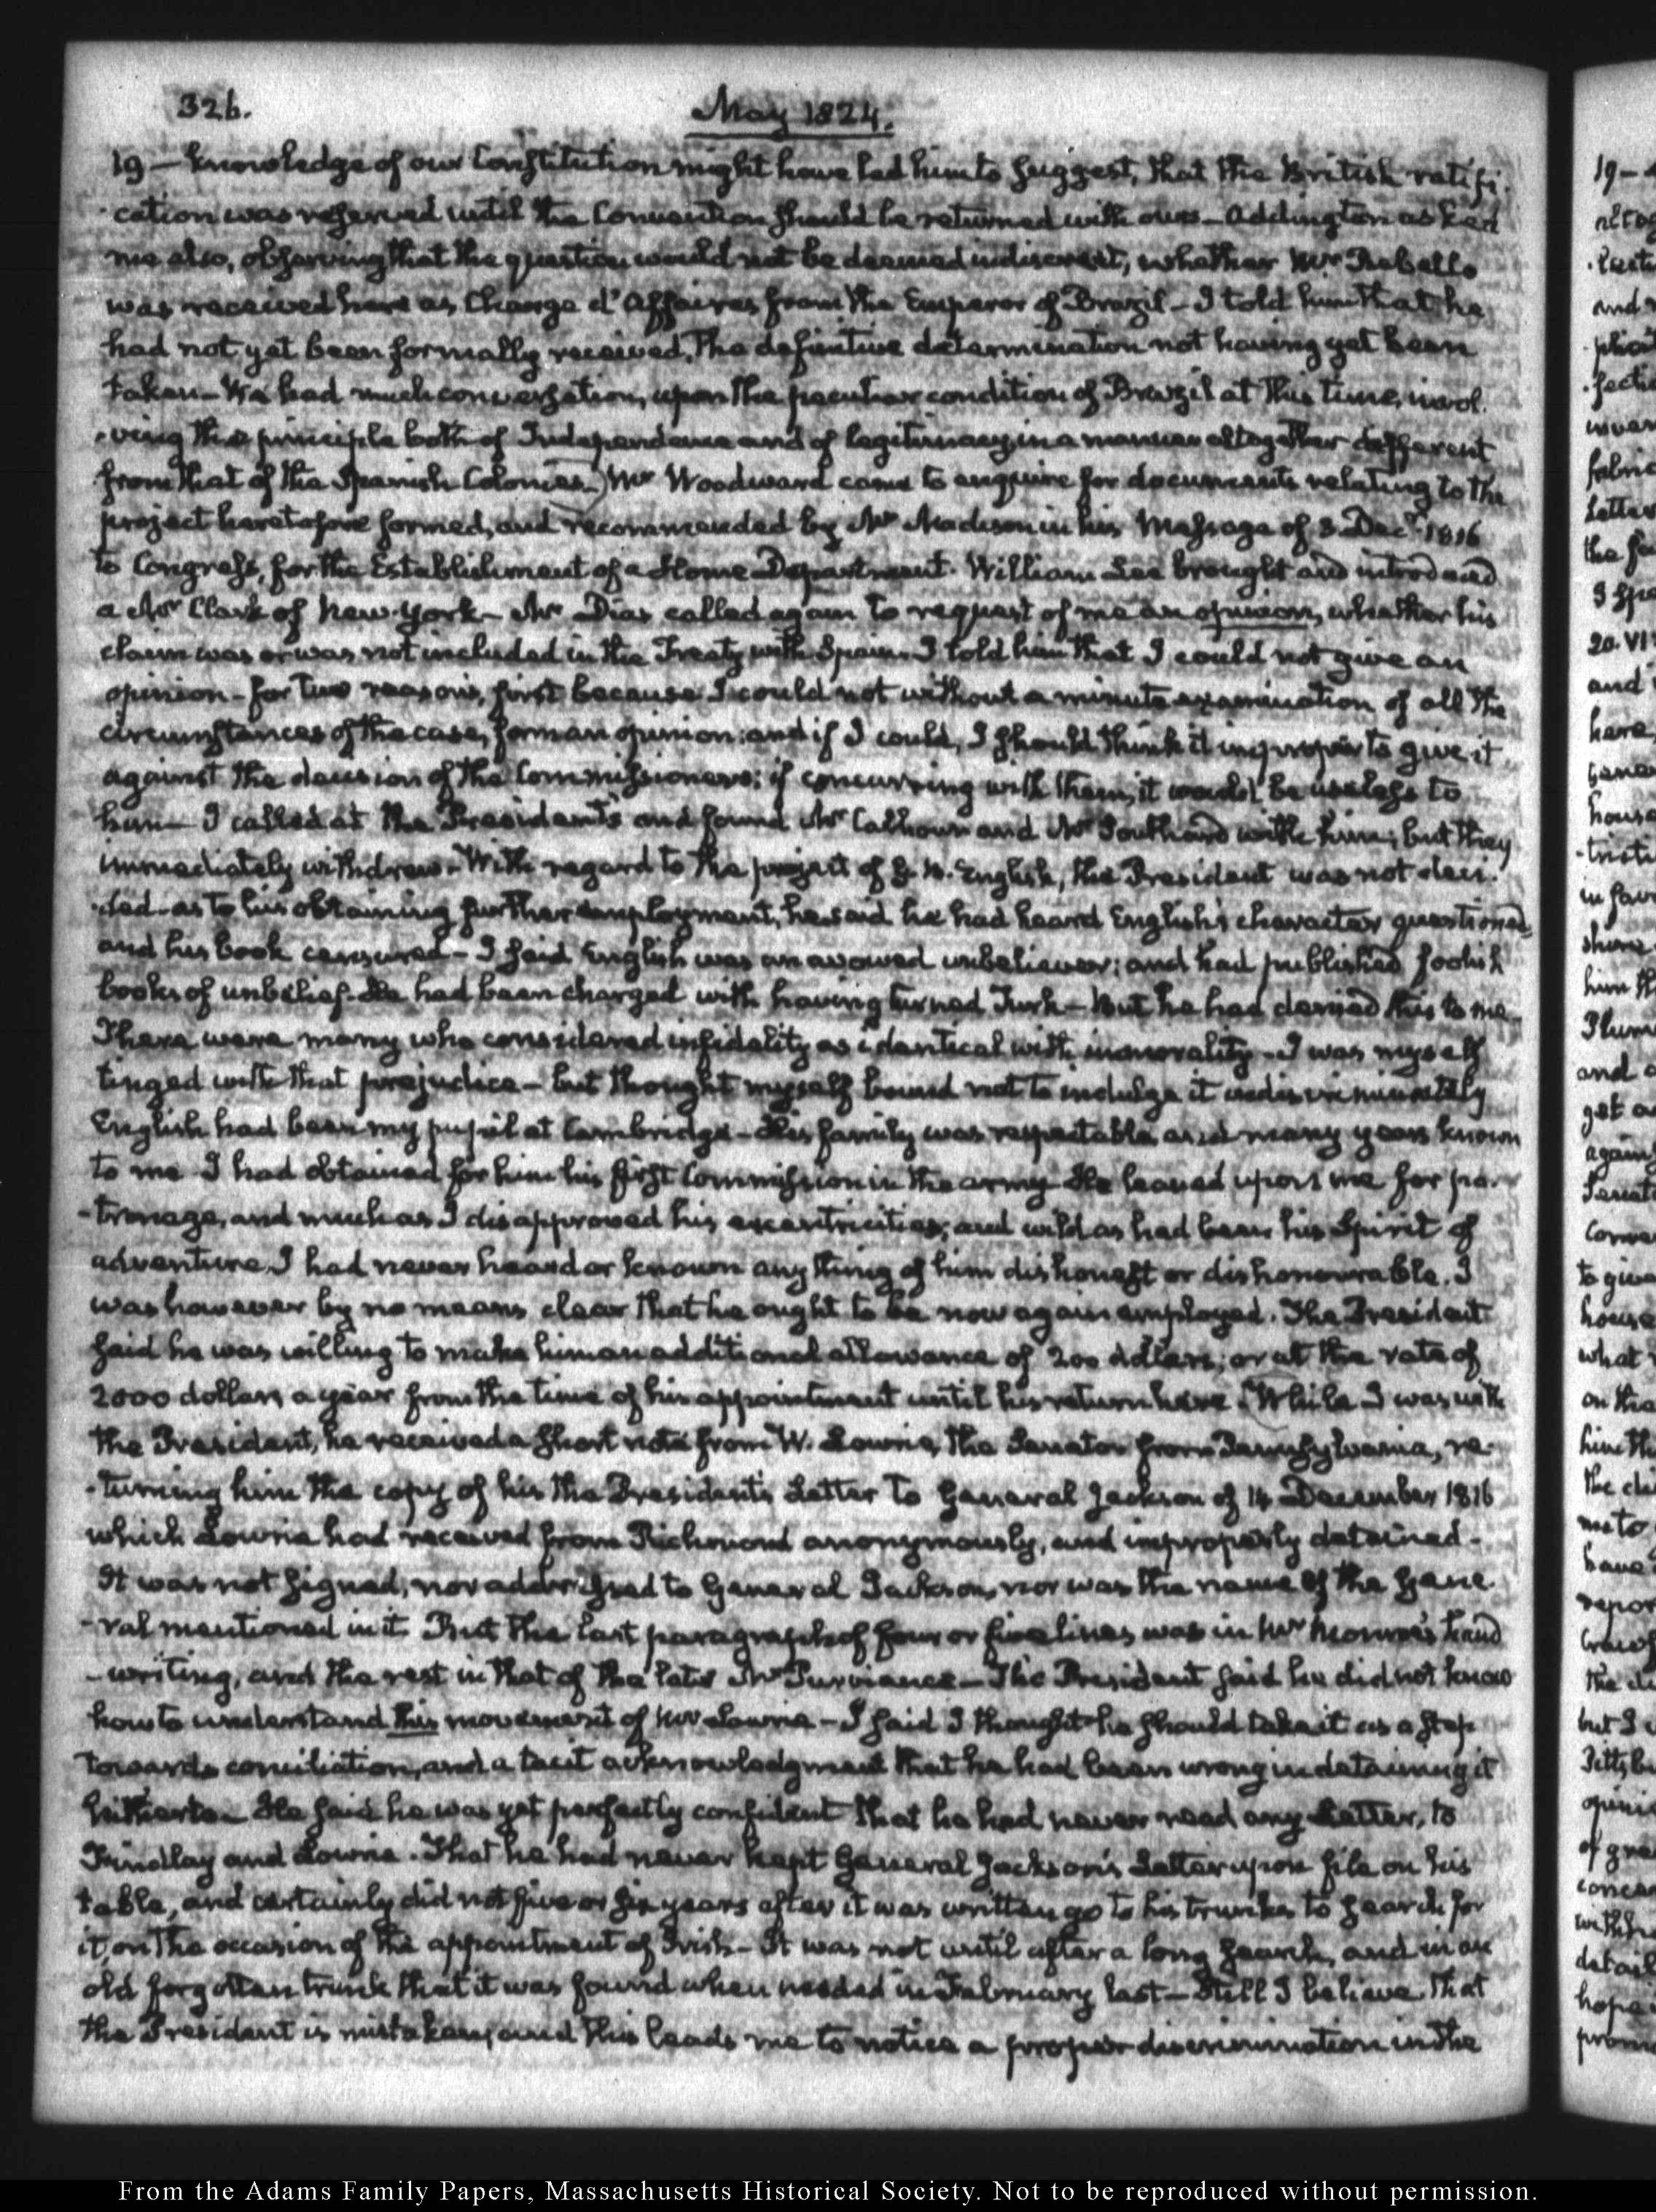 326.
May 1824.
19 — knowledge of our Constitution might have led him to suggest, that the British ratifi-
-cation was reserved until the Convention should be returned with ours — Addington asked
me also, observing that the question would not be deemed indiscreet, whether Mr Rebello
was received here as Charge d'Affaires from the Emperor of Brazil — I told him that he
had not yet been formally received. The definitive determination not having yet been
taken — We had much conversation, upon the peculiar condition of Brazil at this time, invol-
-ving the principle both of Independence and of legitimacy in a manner altogether different
from that of the Spanish Colonies — Mr Woodward came to enquire for documents relating to the
project heretofore formed, and recommended by Mr Madison in his Message of 3 Decr 1816
to Congress, for the Establishment of a Home Department. William Lee brought and introduced
a Mr Clark of New-York — Mr Dias called again to request of me an opinion, whether his
claim was or was not included in the Treaty with Spain — I told him that I could not give an
opinion — for two reasons, first because I could not without a minute examination of all the
circumstances of the case, form an opinion: and if I could, I should think it improper to give it
against the decision of the Commissioners: if concurring with them, it would be useless to
him — I called at the President's and found Mr Calhoun and Mr Southard with him; but they
immediately withdrew — With regard to the project of G. B. English, the President was not deci-
-ded as to his obtaining further employment, he said he had heard English's character questioned,
and his book censured — I said English was an avowed unbeliever; and had published foolish
books of unbelief. He had been charged with having turned Turk — but he had denied this to me —
There were many who considered infidelity as identical with immorality — I was myself
tinged with that prejudice — but thought myself bound not to indulge it undiscriminately
English had been my pupil at Cambridge — His family was respectable and many years known
to me — I had obtained for him his first Commission in the army — He leaned upon me for pa-
-tronage, and much as I disapproved his excentricities; and wild as had been his Spirit of
adventure, I had never heard or known any thing of him dishonest or dishonourable. I
was however by no means clear that he ought to be now again employed. The President
said he was willing to make him an additional allowance of 200 dollars; or at the rate of
2000 dollars a year from the time of his appointment until his return here. While I was with
the President, he received a short note from W. Lowrie, the Senator from Pennsylvania, re-
-turning him the copy of his the President's Letter to General Jackson of 14 December 1816
which Lowrie had received from Richmond anonymously, and improperly detained —
It was not signed, nor addressed to General Jackson, nor was the name of the Gene-
-ral mentioned in it But the last paragraph of four or five lines was in Mr Monroe's hand
-writing, and the rest in that of the late Mr Purviance — The President said he did not know
how to understand this movement of Mr Lowrie — I said I thought he should take it as a step
towards conciliation, and a tacit acknowledgment that he had been wrong in detaining it
hitherto — He said he was yet perfectly confident that he had never read any Letter, to
Findlay and Lowrie. That he had never kept General Jackson's Letter upon file on his
table, and certainly did not five or six years after it was written go to his trunks to search for
it, on the occasion of the appointment of Irish — It was not until after a long search, and in an
old forgotten trunk that it was found when needed in February last — Still I believe that
the President is mistaken, and this leads me to notice a proper discrimination in the
From the Adams Family Papers, Massachusetts Historical Society. Not to be reproduced without permission.